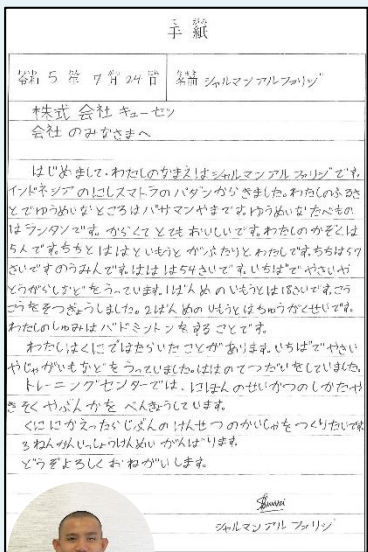 手紙
令和5年 7月24日 名前 シャルマン アルファリジ
株式会社キューセン
会社のみなさまへ
はじめまして。わたしのなまえはシャルマン アルファリジです。
インドネシアのにしスマトラのパダンからきました。わたしのふるさ
とでゆうめいなところはパサマンやまです。ゆうめいなたべもの
はランタンです。からくてとてもおいしいです。わたしのかぞくは
5人です。ちちとははといもうとがふたりとわたしです。ちちは57
さいですのうみんです。ははは54さいです。いちばでやさいや
とうがらしなどをうっています。1ばんめのいもうとは18さいです。こう
こうをそつぎょうしました。2ばんめのいもうとはちゅうがくせいです。
わたしのしゅみはバドミントンをすることです。
わたしはくにではたらいたことがあります。いちばでやさい
やじゃがいもなどをうっていました。ははのてつだいをしていました。
トレーニングセンターでは、にほんのせいかつのしかたや
きそくやぶんかをべんきょうしています。
くににかえったらじぶんのけんせつのかいしゃをつくりたいです。
3ねんかんいっしょうけんめいがんばります。
どうぞよろしくおねがいします。
シャルマン アル ファリジ